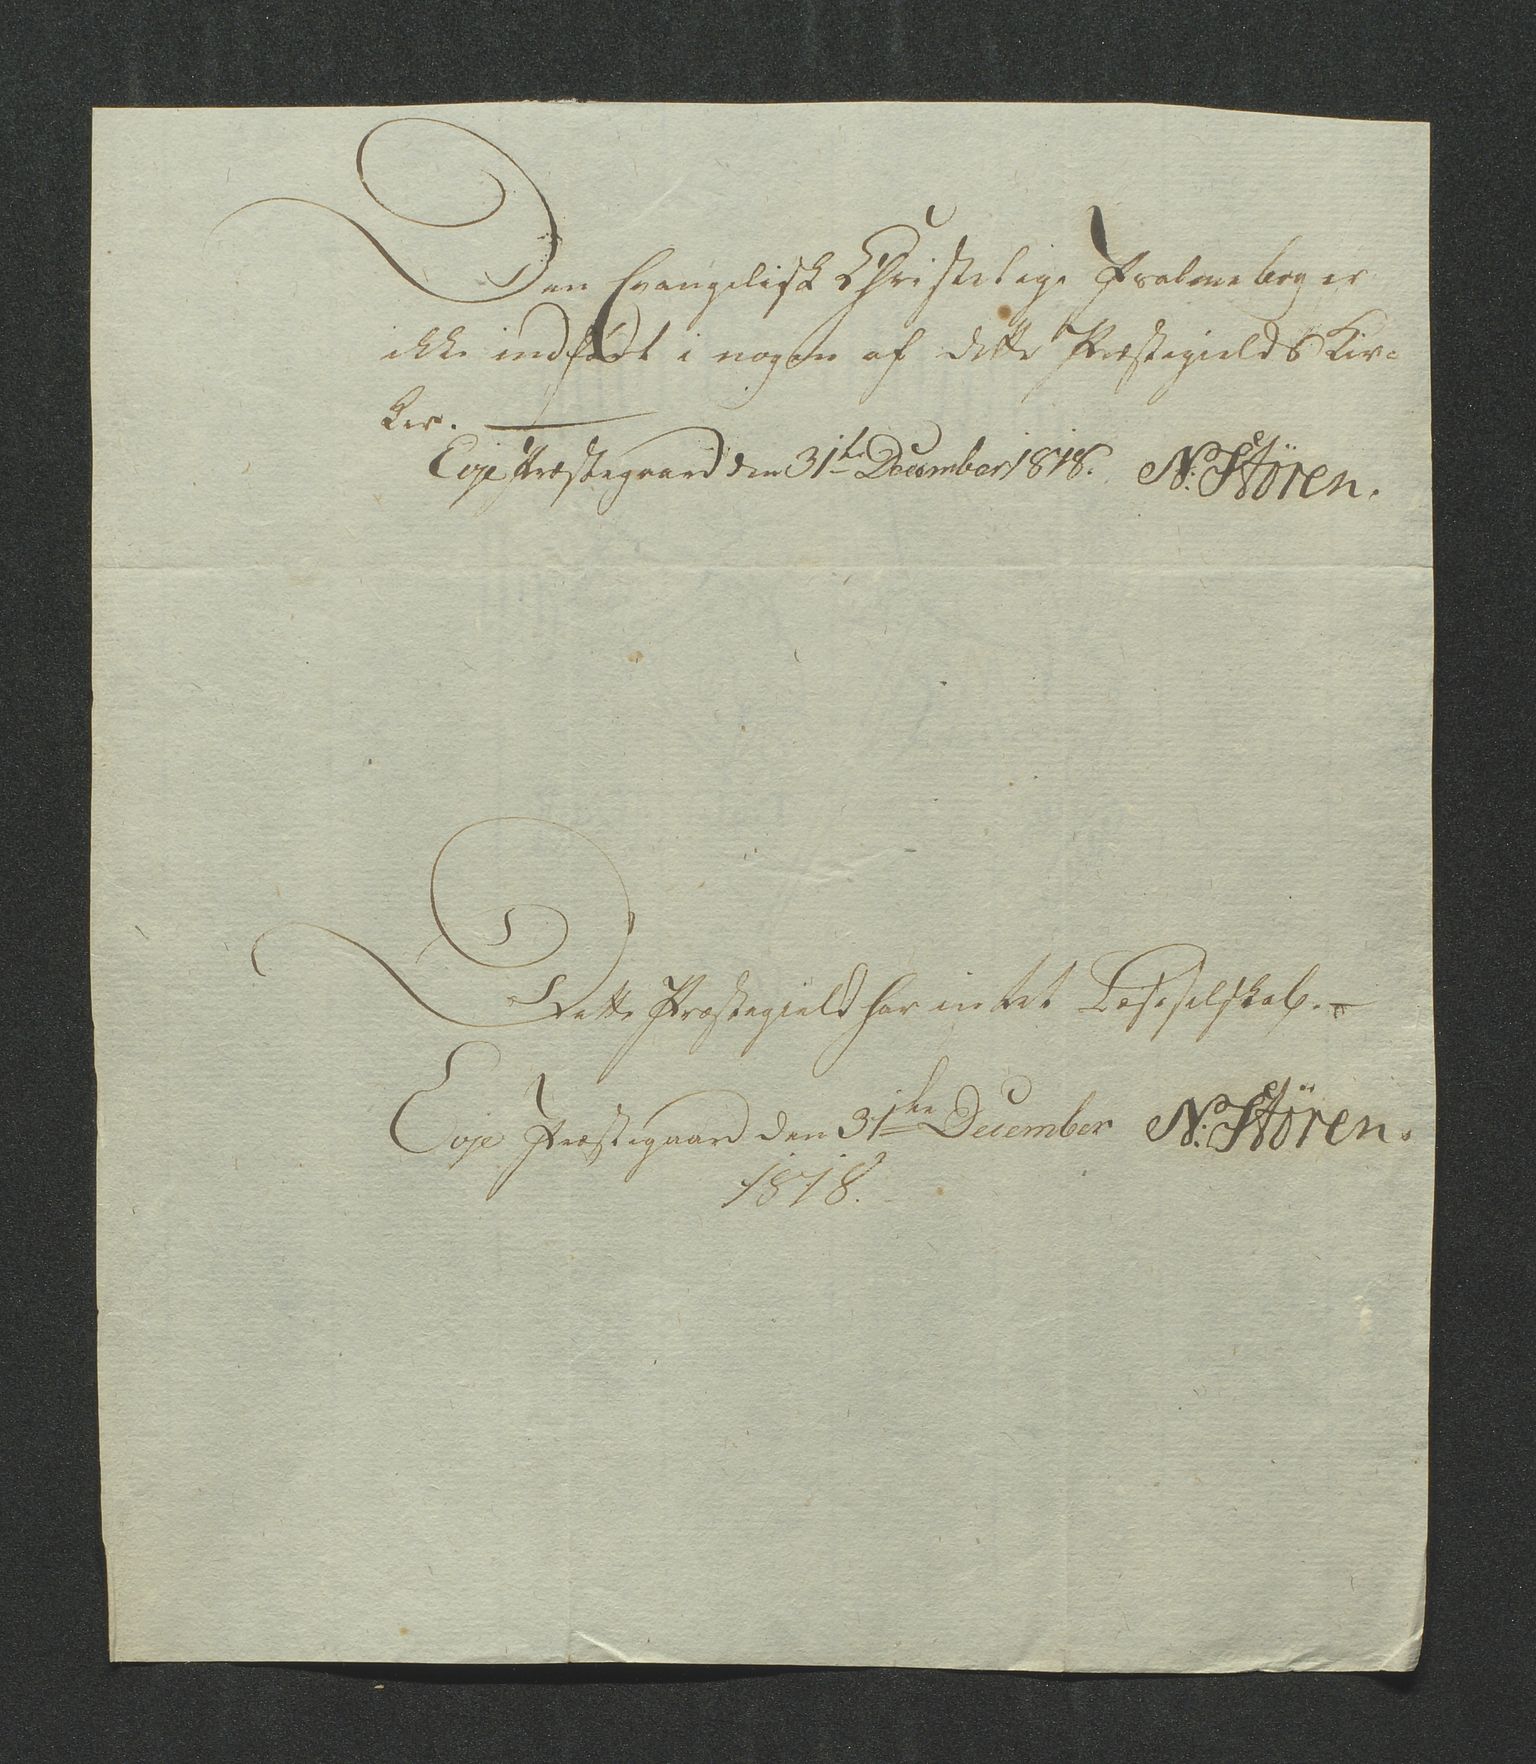 Den Evangelisk Christelige Psalmebog er
ikke indført i nogen af dette Præstegields Kir-
ker. —
Evje Præstegaard den 31te December 1818. N: Stören.
Dette Præstegield har intet Læseselskab. —
Evje Præstegaard den 31te December N: Stören.
1818.